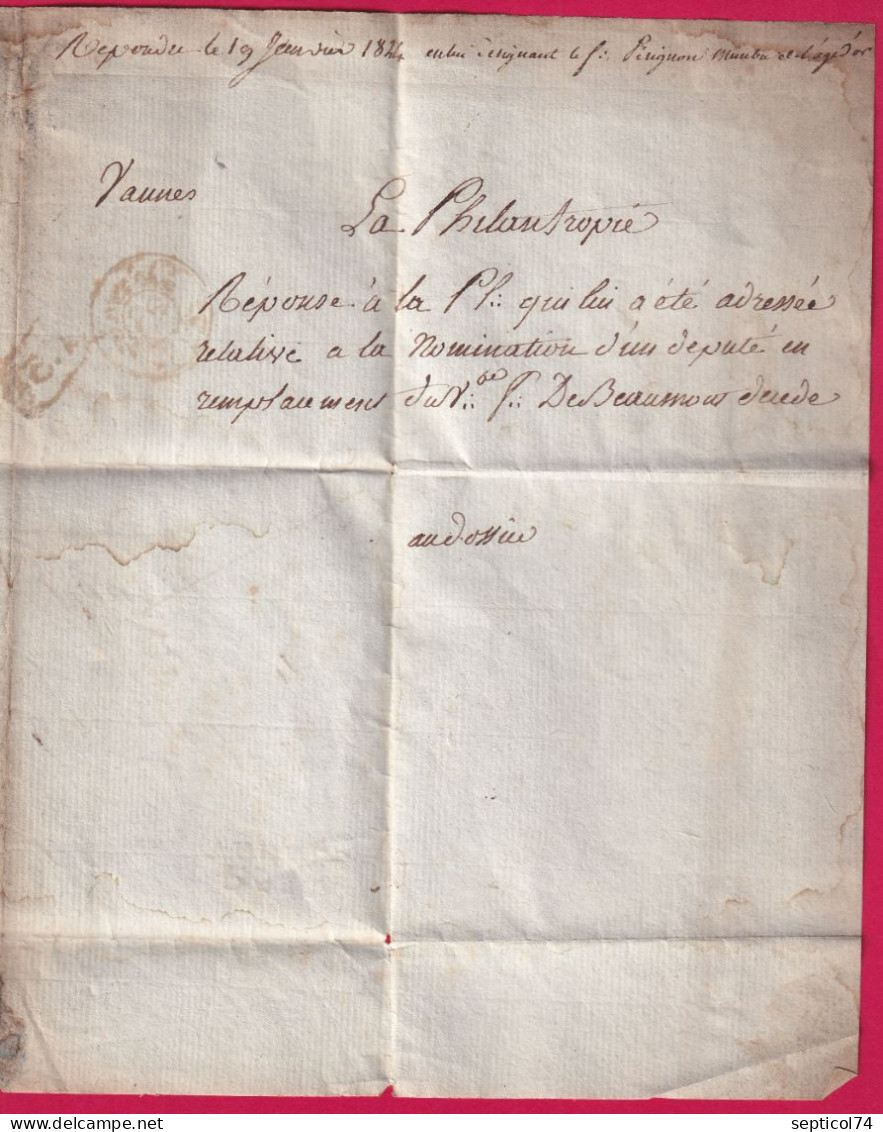 Repondu le 19 Janvier 1824 en lui designant le f∴ Pérignon
Vannes
La Philantropie
Réponse à la Pl∴ qui lui a été adressée
relative a la Nomination d'un député en
remplacement du V∴ f∴ De Beaumont décédé
au dossier
septicol74